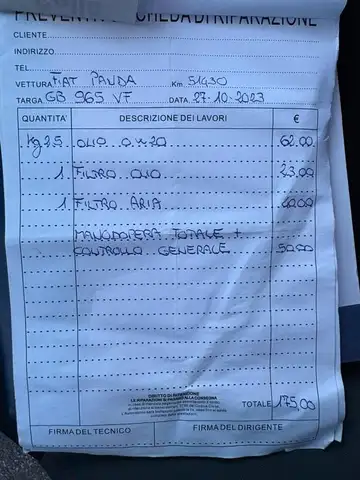 PREVENTIVO SCHEDA DI RIPARAZIONE
CLIENTE
INDIRIZZO
TEL
VETTURA FIAT PANDA Km 51430
TARGA GB 965 VF DATA 27-10-2023
QUANTITA' DESCRIZIONE DEI LAVORI €
Kg 2.5 OLIO 0W20 62.00
1 FILTRO OLIO 23.00
1 FILTRO ARIA
MANODOPERA TOTALE +
CONTROLLO GENERALE 50.00
DIRITTO DI RITENZIONE
LE RIPARAZIONI SI PAGANO ALLA CONSEGNA
TOTALE 175,00
FIRMA DEL TECNICO FIRMA DEL DIRIGENTE